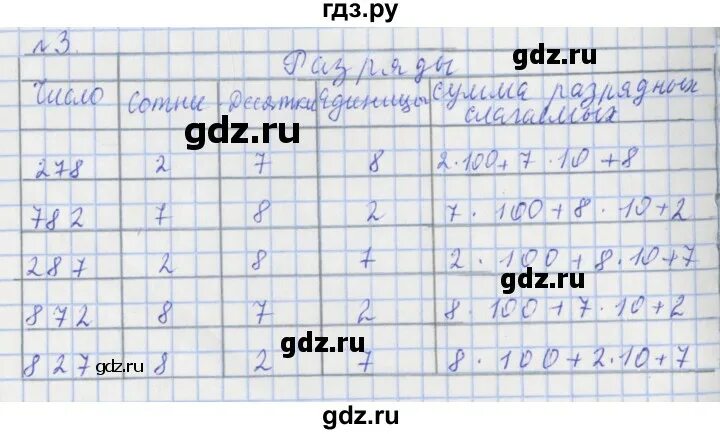 гдз.ру
№3.
Разряды
Число Сотни Десятки Единицы Сумма разрядных слагаемых
gdz.ru
gdz.ru
278 2 7 8 2·100+7·10+8
782 7 8 2 7·100+8·10+2
gdz.ru
287 2 8 7 2·100+8·10+7
gdz.ru
872 8 7 2 8·100+7·10+2
gdz.ru
827 8 2 7 8·100+2·10+7
gdz.ru
gdz.ru